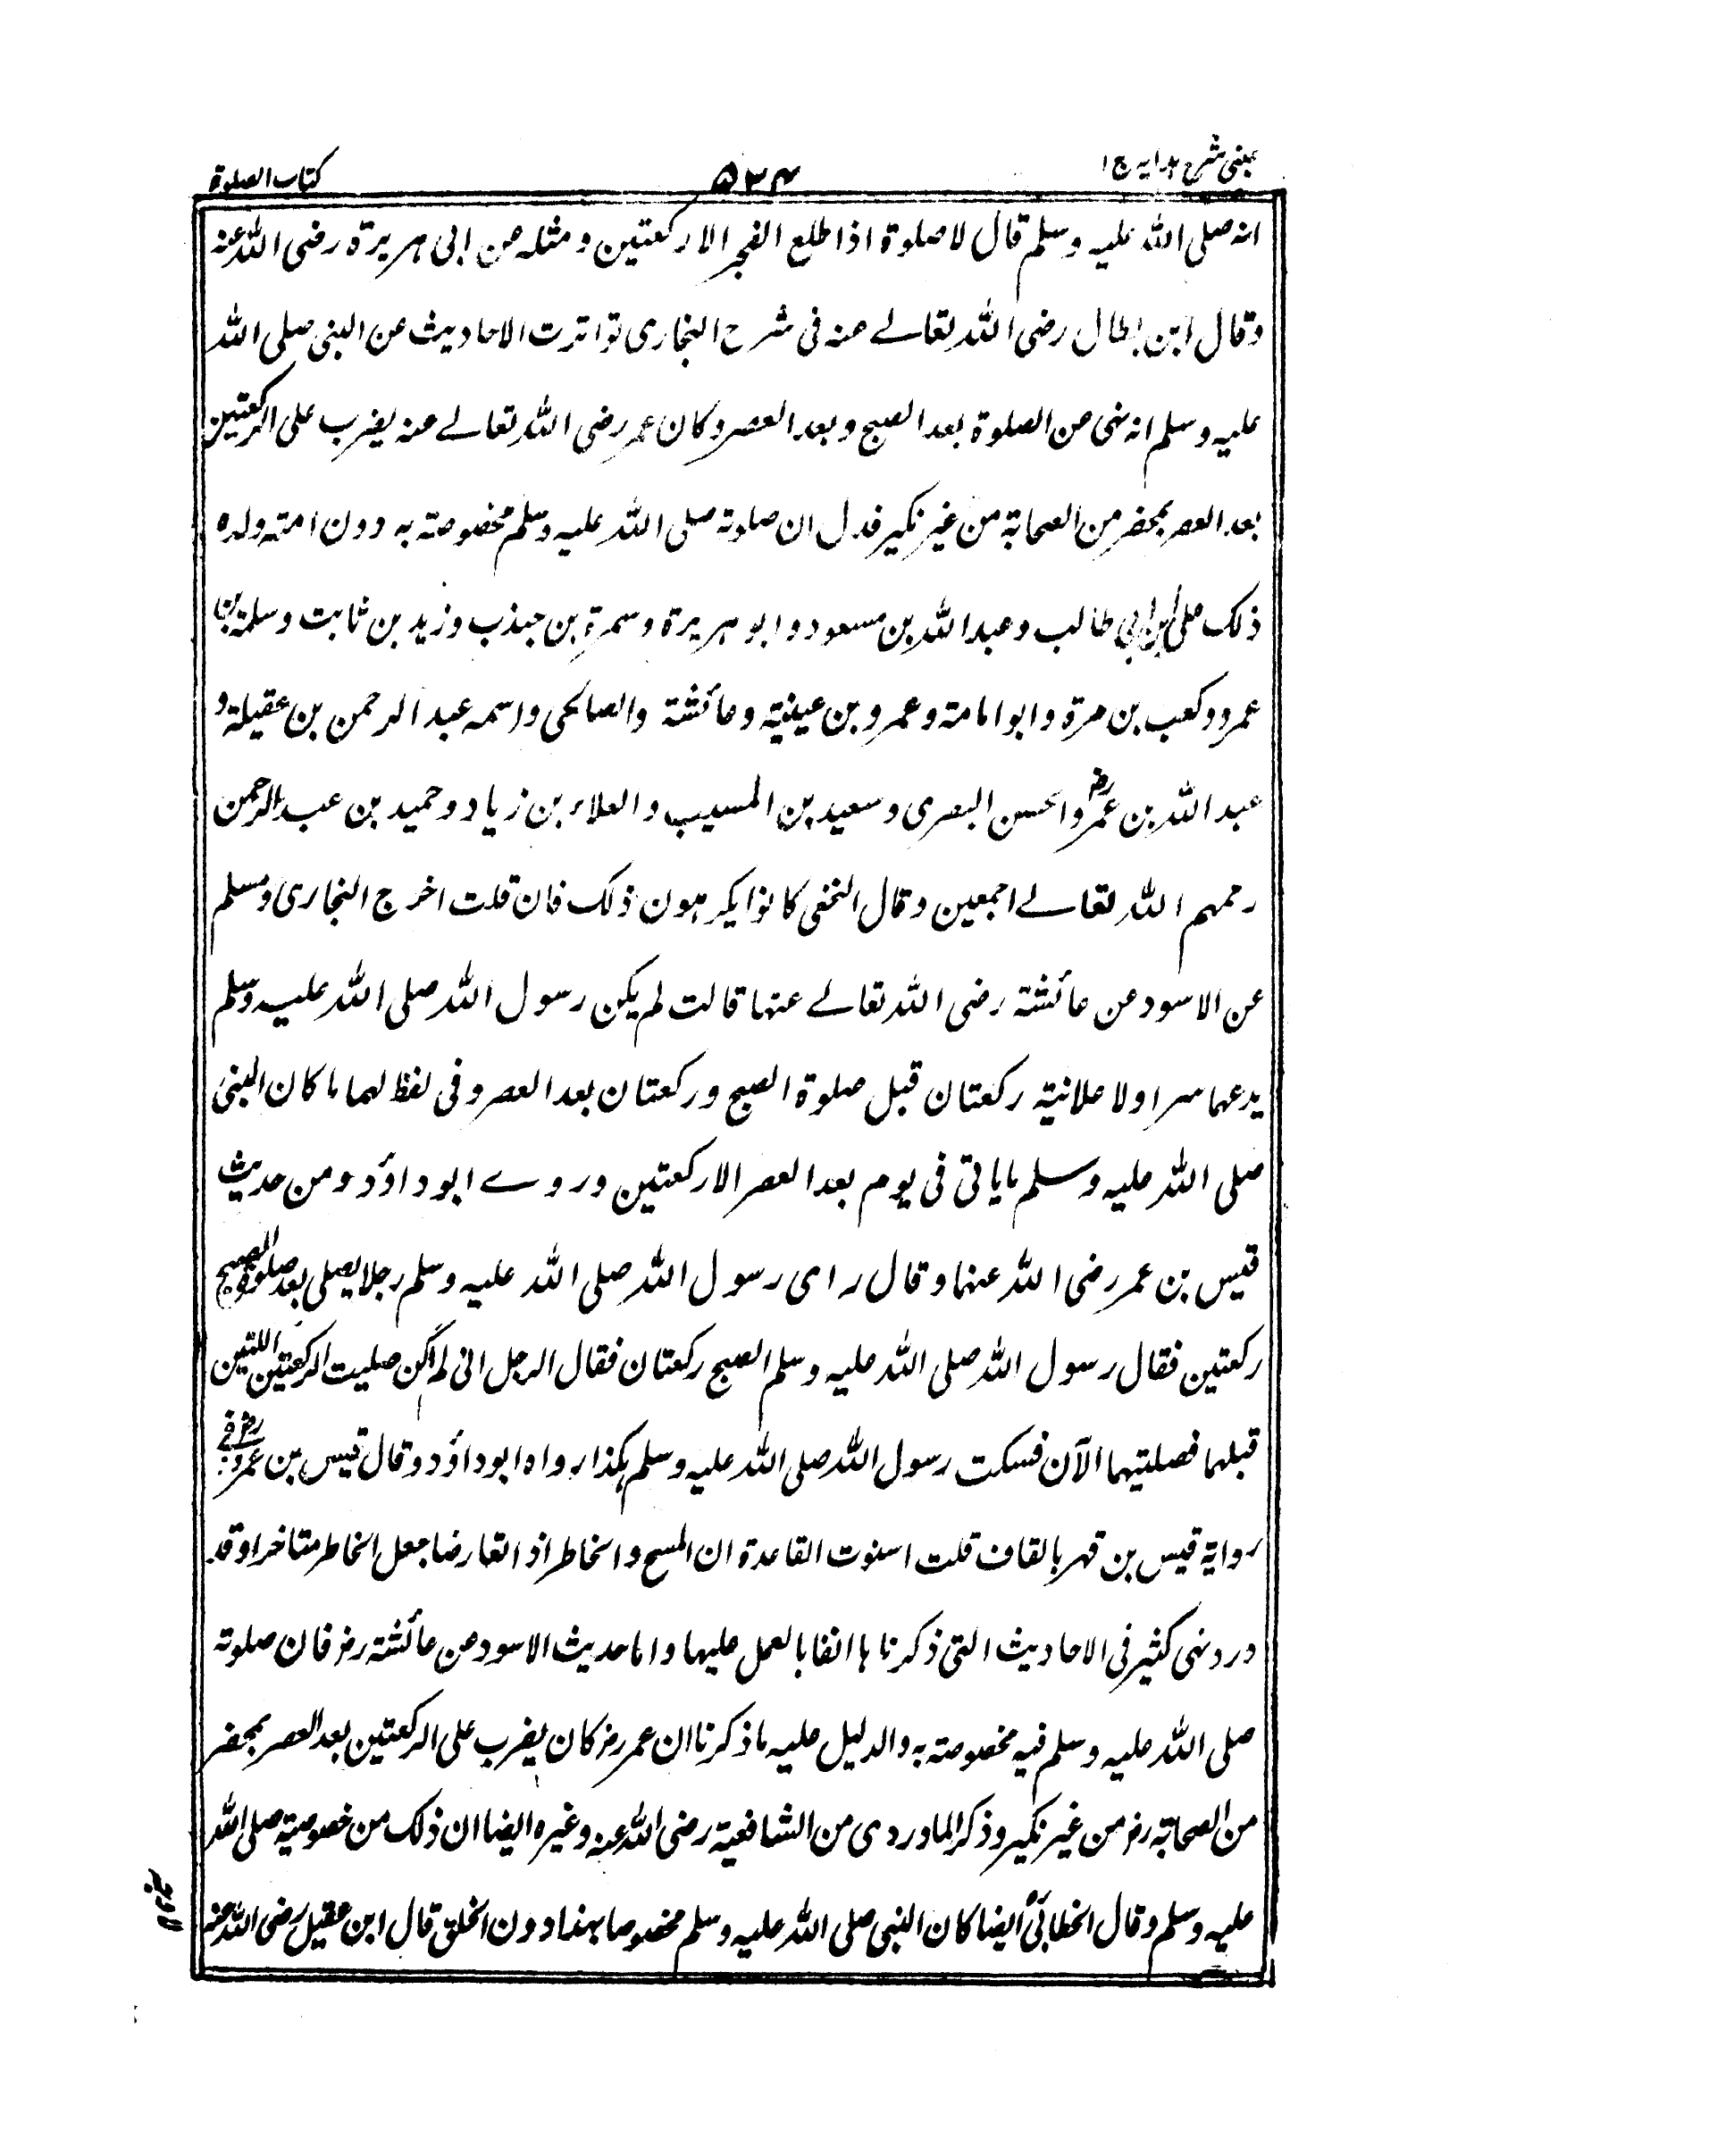 عینی شرح ہدایہ ج ا
۵۳۴
کتاب الصلوة
انہ صلی اللہ علیہ وسلم قال لا صلوة اذا طلع الفجر الا رکعتین ومثلہ عن ابی ہریرة رضی اللہ عنہ
وقال ابن بطال رضی اللہ تعالے عنہ فی شرح البخاری تواترت الاحادیث عن النبی صلی اللہ
علیہ وسلم انہ نہی عن الصلوة بعد الصبح وبعد العصر وکان عمر رضی اللہ تعالے عنہ یضرب علی الرکعتین
بعد العصر بمحضر من الصحابة من غیر نکیر فدل ان صلوتہ صلی اللہ علیہ وسلم مخصوصتہ بہ دون امتہ ولدہ
ذلک علی ابن ابی طالب وعبد اللہ بن مسعود وابو ہریرة وسمرة بن جندب وزید بن ثابت وسلمة بن
عمرو وکعب بن مرة وابو امامتہ وعمرو بن عیینیتہ وعائشة والصالحی واسمہ عبد الرحمن بن عقیلة و
عبد اللہ بن عمر رض والحسن البصری وسعید بن المسیب والعلاء بن زیاد وحمید بن عبد الرحمن
رحمہم اللہ تعالے اجمعین وقال النخفی کانوا یکرہون ذلک فان قلت اخرج البخاری ومسلم
عن الاسود عن عائشة رضی اللہ تعالے عنہا قالت لم یکن رسول اللہ صلی اللہ علیہ وسلم
یدعہما سرا ولا علانیتہ رکعتان قبل صلوة الصبح ورکعتان بعد العصر وفی لفظ لہما ما کان النبی
صلی اللہ علیہ وسلم مایاتی فی یوم بعد العصر الا رکعتین وروے ابو داؤد ومن حدیث
قیس بن عمر رضی اللہ عنہما وقال رای رسول اللہ صلی اللہ علیہ وسلم رجلا یصلی بعد صلوة الصبح
رکعتین فقال رسول اللہ صلی اللہ علیہ وسلم الصبح رکعتان فقال الرجل انی لم اکن صلیت الرکعتین اللتین
قبلہما فصلیتہما الآن فسکت رسول اللہ صلی اللہ علیہ وسلم ہکذا رواہ ابو داؤد وقال قیس بن عمرو رض فی
روایة قیس بن قہر بالقاف قلت اسنوت القاعدة ان المسح والخاطر اذا تعارضا جعل الخاطر متاخرا وقد
ورد نہی کثیر فی الاحادیث التی ذکرناہا انفا بالعمل علیہا واما حدیث الاسود عن عائشة رض فان صلوتہ
صلی اللہ علیہ وسلم فیہ مخصوصتہ بہ والدلیل علیہ ما ذکرنا ان عمر رض کان یضرب علی الرکعتین بعد العصر بمحضر
من الصحابتہ رض من غیر نکیر وذکر الماوردی من الشافعیتہ رضی اللہ عنہ وغیرہ ایضا ان ذلک من خصوصیتہ صلی اللہ
علیہ وسلم وقال الخطابی ایضا کان النبی صلی اللہ علیہ وسلم مخصوصا بہذا دون الخلق قال ابن عقیل رضی اللہ عنہ